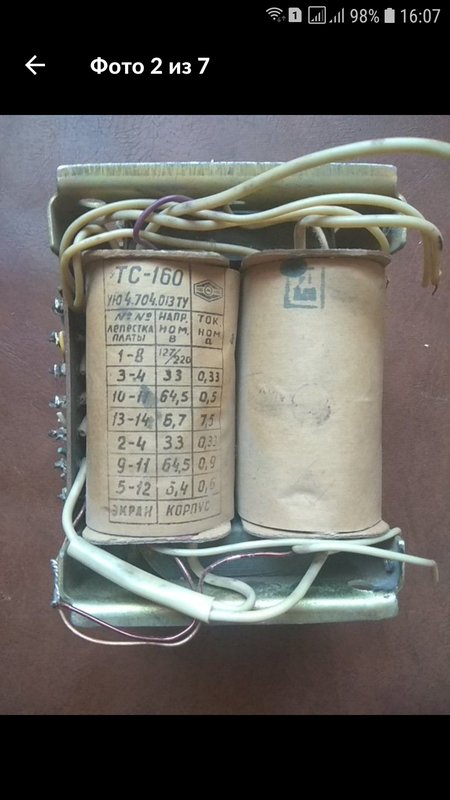 1 98% 16:07
Фото 2 из 7
ТС-160
УЮ4.704.013ТУ
№№ ЛЕПЕСТКА ПЛАТЫ НАПР. НОМ. В ТОК НОМ. А
1-8 127/220
3-4 33 0,33
10-11 64,5 0,5
13-14 6,7 7,5
2-4 33 0,33
9-11 64,5 0,9
5-12 6,4 0,6
ЭКРАН КОРПУС